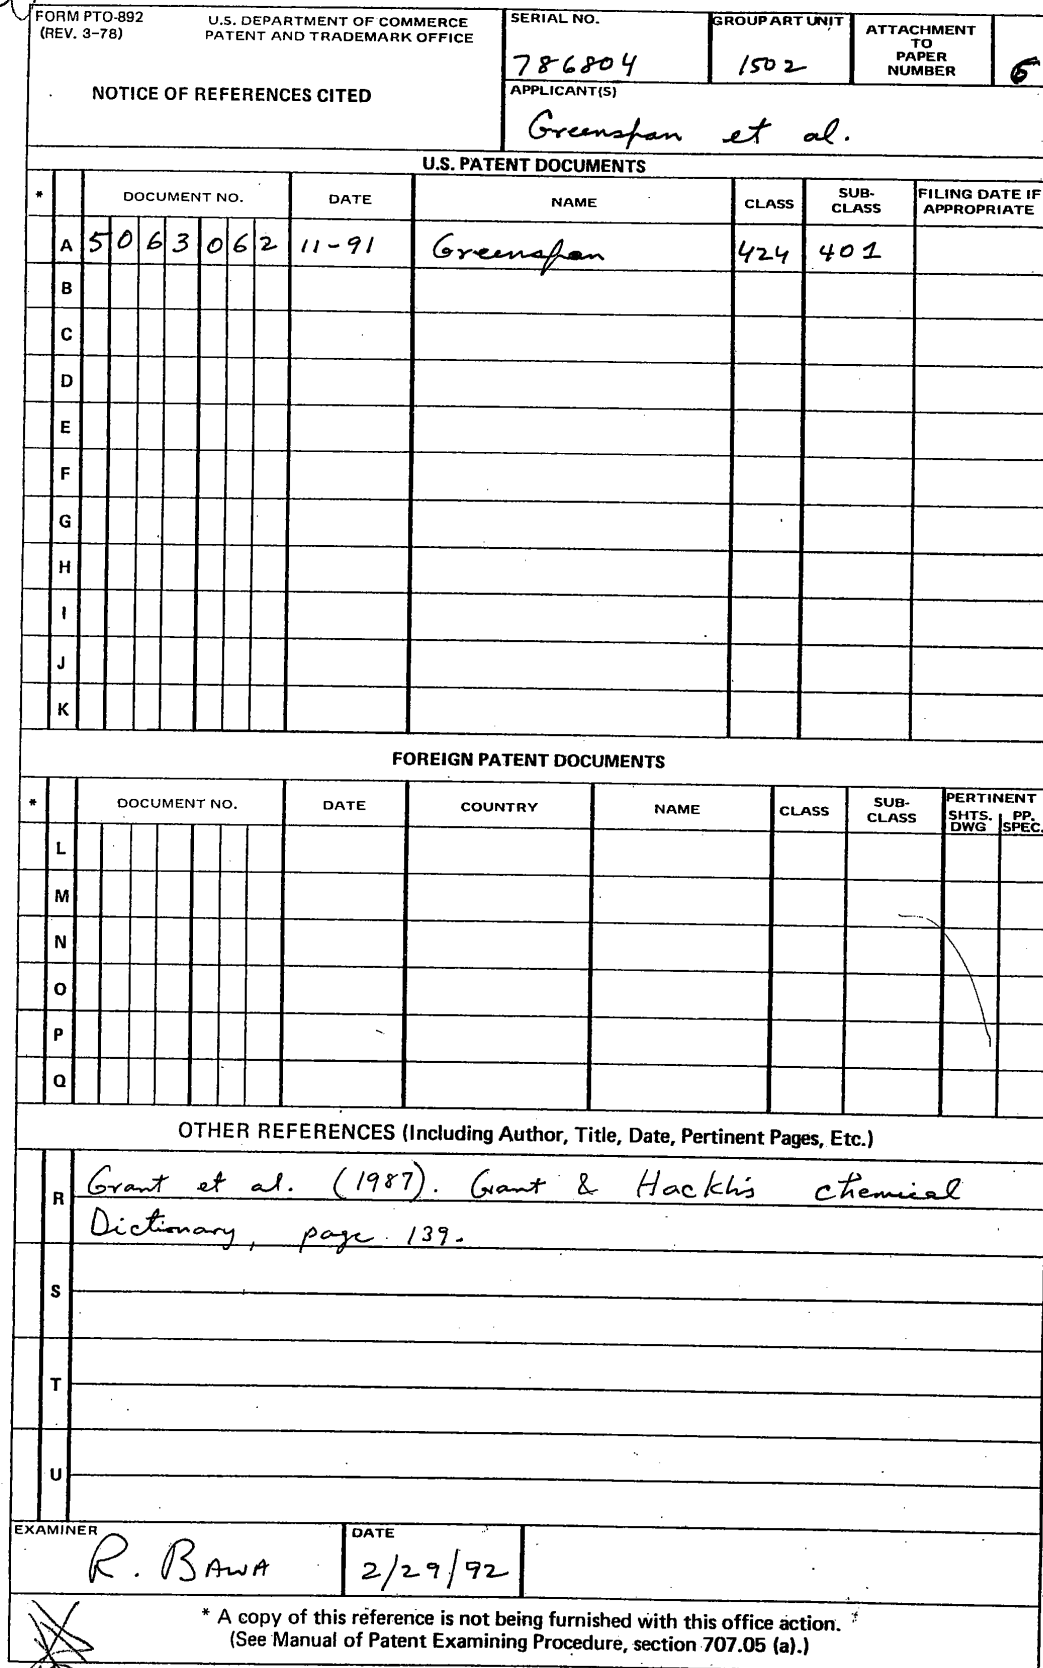 FORM PTO-892
(REV. 3-78)
U.S. DEPARTMENT OF COMMERCE
PATENT AND TRADEMARK OFFICE
NOTICE OF REFERENCES CITED
SERIAL NO.
786804
GROUP ART UNIT
1502
ATTACHMENT
TO
PAPER
NUMBER
5
APPLICANT(S)
Greenspan et al.
U.S. PATENT DOCUMENTS
* DOCUMENT NO. DATE NAME CLASS SUB-CLASS FILING DATE IF APPROPRIATE
A 5063062 11-91 Greenspan 424 401
B
C
D
E
F
G
H
I
J
K
FOREIGN PATENT DOCUMENTS
* DOCUMENT NO. DATE COUNTRY NAME CLASS SUB-CLASS PERTINENT SHTS. DWG PP. SPEC.
L
M
N
O
P
Q
OTHER REFERENCES (Including Author, Title, Date, Pertinent Pages, Etc.)
R Grant et al. (1987). Grant & Hackh's chemical
Dictionary, page 139.
S
T
U
EXAMINER
R. BAWA
DATE
2/29/92
* A copy of this reference is not being furnished with this office action.
(See Manual of Patent Examining Procedure, section 707.05 (a).)